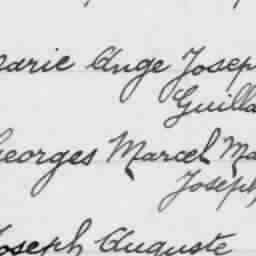 Marie Ange Joseph
Guilla
Georges Marcel Ma
Joseph
Joseph Auguste